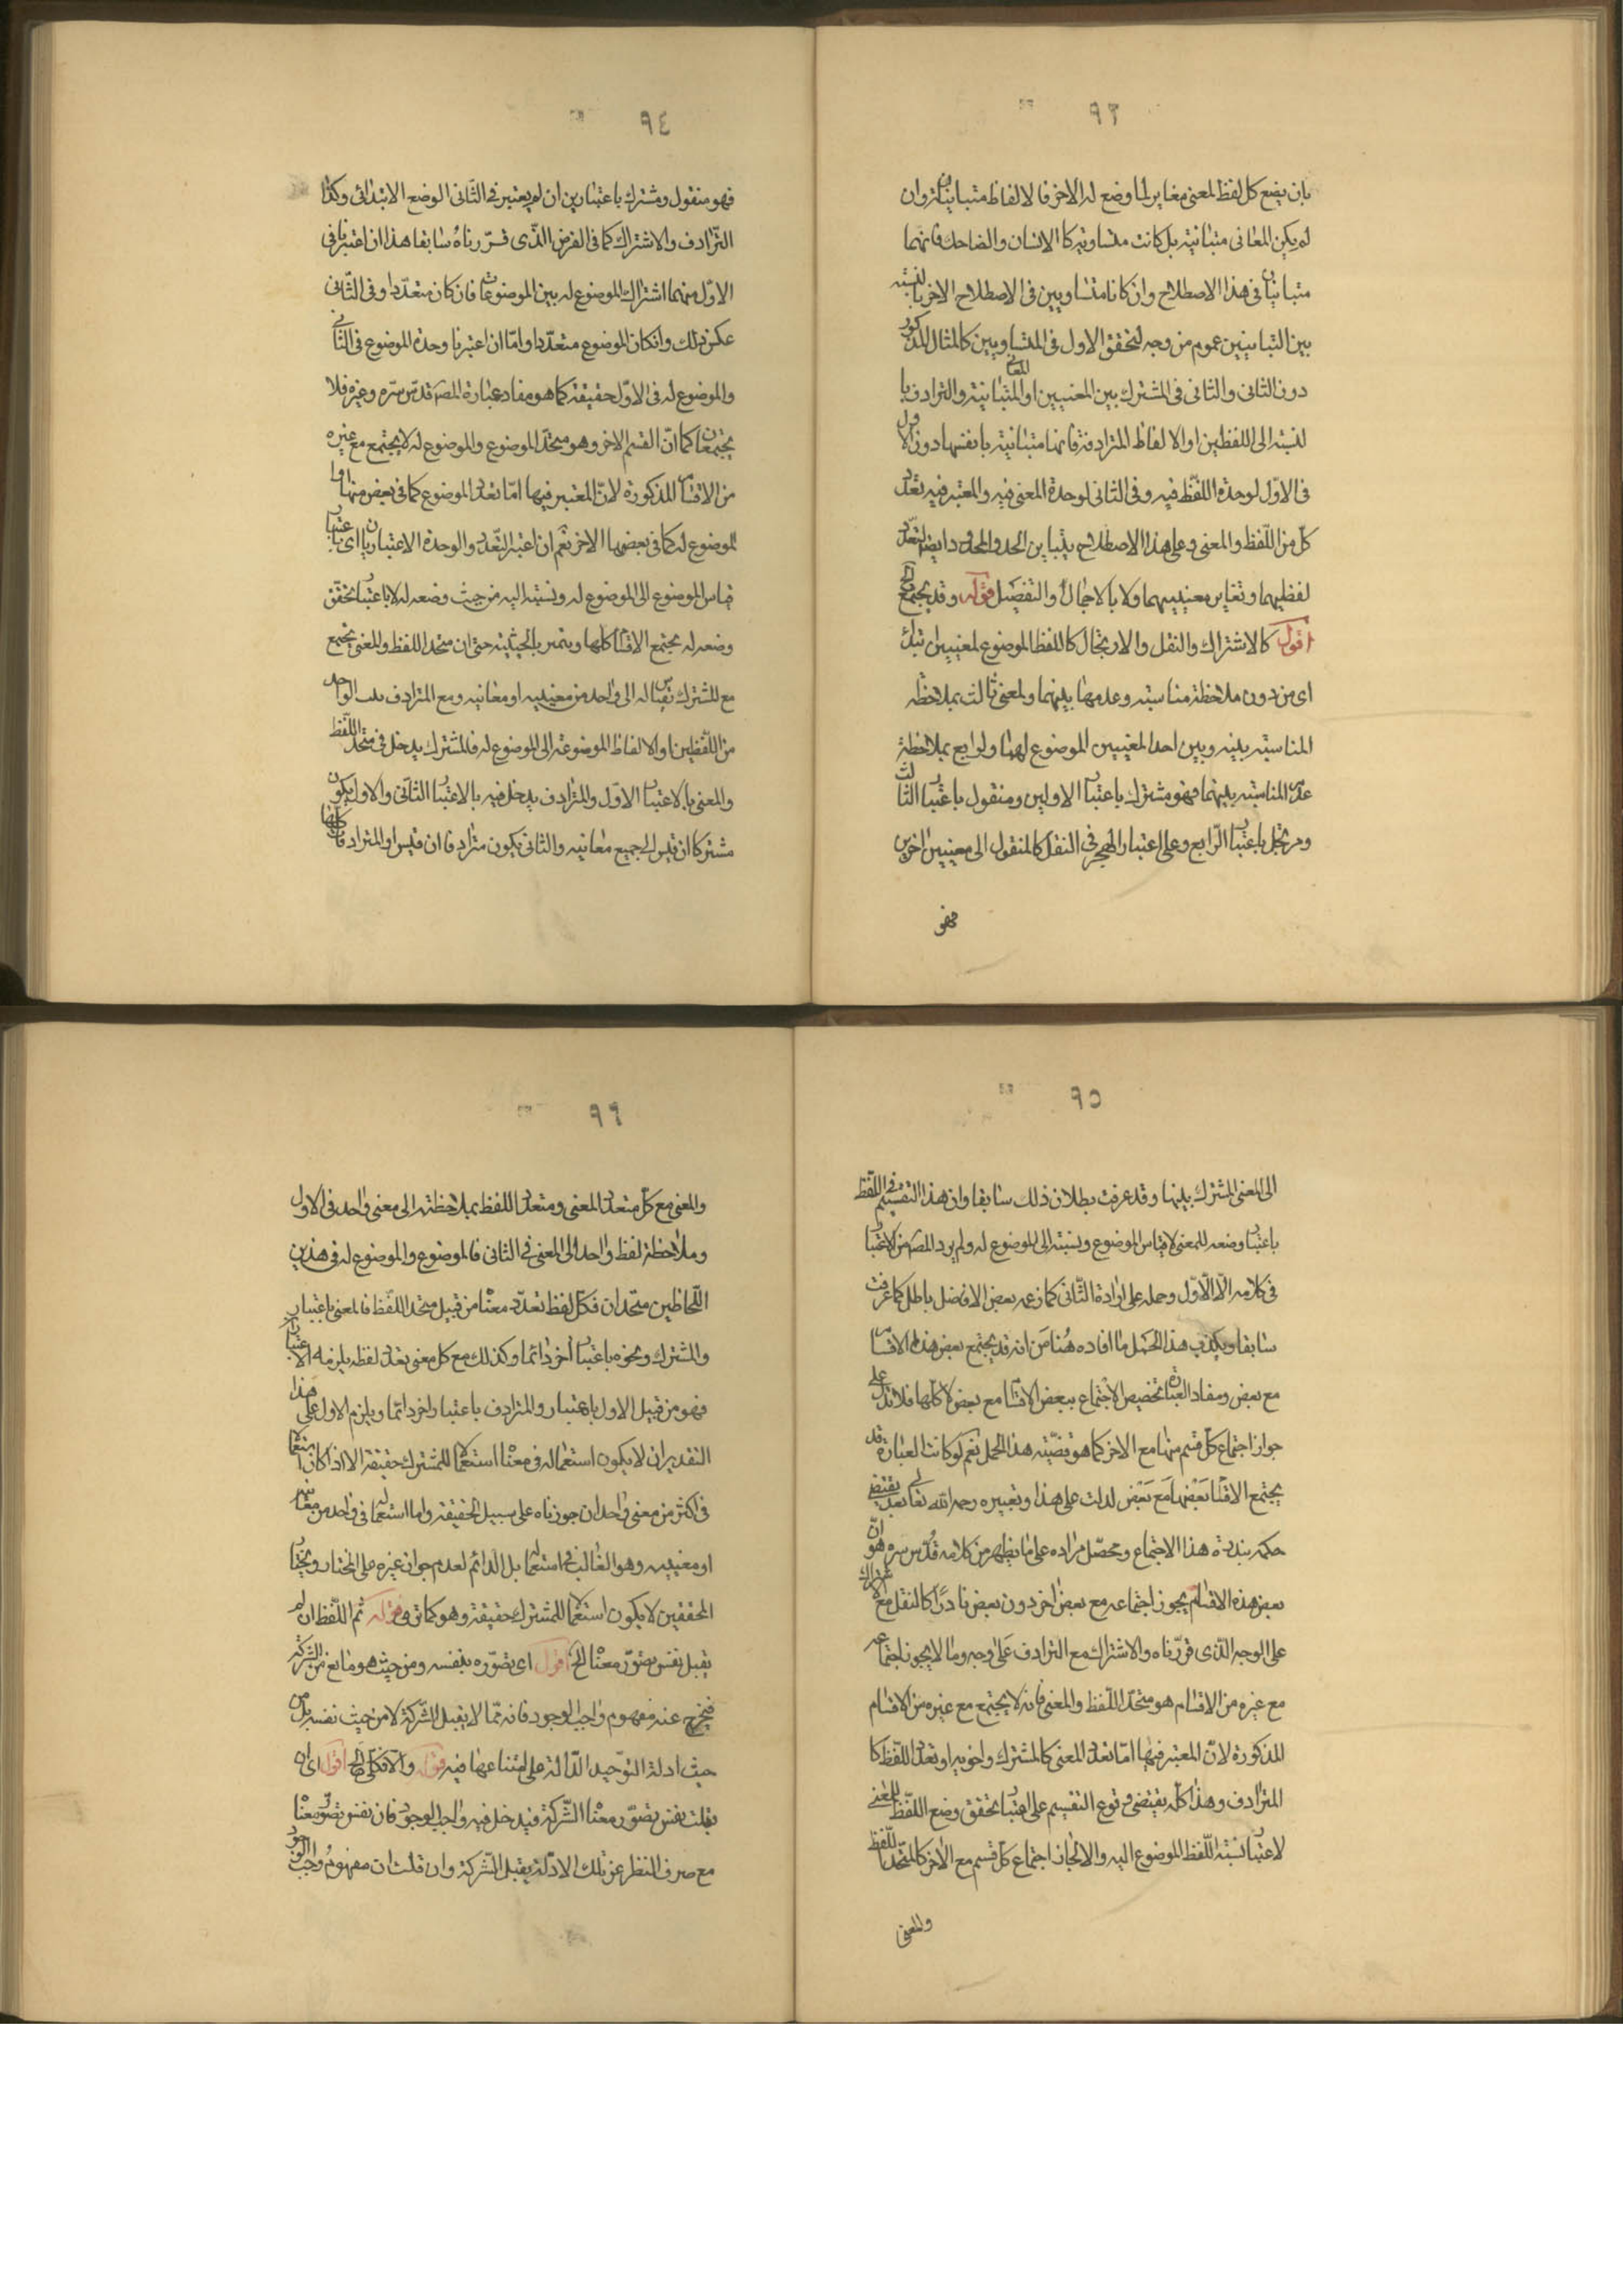 ٩٣
بان يضع كل لفظ لمعنى مغاير لما وضع له الاخر فالالفاظ متباينة وان
لم يكن المعانى متباينة بل كانت متساوية كالانسان والضاحك فانهما
متباينان فى هذا الاصطلاح وان كانا متساويين فى الاصطلاح الاخر بالنسبة
بين التباينين عموم من وجه لتحقق الاول فى المتساويين كالمثال المذكور
دون الثانى والثانى فى المشترك بين المعنيين او المعانى المتباينة والترادف با
لنسبة الى اللفظين او الالفاظ المترادفة فانها متباينة بانفسها دون الاول
فى الاول لوحدة اللفظ فيه وفى الثانى لوحدة المعنى فيه والمعتبر فيه تعدد
كل من اللفظ والمعنى وعلى هذا الاصطلاح يتباين الحد والمحدود ايضا لتعدد
لفظيهما وتغاير معنييهما ولا بالاجمال والتفصيل قوله وقد يجتمع الخ
اقول كالاشتراك والنقل والارتجال كاللفظ الموضوع لمعنيين ابتداء
اى من دون ملاحظة مناسبة وعدمها بينهما ولمعنى ثالث بملاحظة
المناسبة بينه وبين احد المعنيين الموضوع لهما ولرابع بملاحظة
عدم المناسبة بينهما فهو مشترك باعتبار الاولين ومنقول باعتبار الثالث
ومرتجل باعتبار الرابع وعلى اعتبار الهجر فى النقل كالمنقول الى معنيين اخرين
فهو
٩٤
فهو منقول ومشترك باعتبارين ان لم يعتبر فى الثانى الوضع الابتدائى وكذا
الترادف والاشتراك كما فى الفرض الذى قررناه سابقا هذا ان اعتبرنا فى
الاول منهما اشتراك الموضوع له بين الموضوعات فان كان متعددا وفى الثانى
عكس ذلك وان كان الموضوع متعددا واما ان اعتبرنا وحدة الموضوع فى الثانى
والموضوع له فى الاول حقيقة كما هو مفاد عبارة المصـ قدس سره وغيره فلا
يجتمعان كما ان القسم الاخر وهو متحد الموضوع والموضوع له لا يجتمع مع غيره
من الاقسام المذكورة لان المعتبر فيها اما تعدد الموضوع كما فى بعض منها وا
لموضوع له كما فى بعضها الاخر نعم ان اعتبر التعدد والوحدة الاعتباريان اى باعتبار
قياس الموضوع الى الموضوع له ونسبته اليه من حيث وضعه له لا باعتبار تحقق
وضعه له يجتمع الاقسام كلها ويتميز بالحيثية حتى ان متحد اللفظ والمعنى يجتمع
مع المشترك بقياسه له الى واحد من معنييه او معانيه ومع المترادف الواحد
من اللفظين او الالفاظ الموضوعة الى الموضوع له فالمشترك يدخل فى متحد اللفظ
والمعنى بالاعتبار الاول والمترادف يدخل فيه بالاعتبار الثانى والاول يكون
مشتركا ان قيس الى جميع معانيه والثانى يكون مترادفا ان قيس المترادفات كلها
٩٥
الى المعنى المشترك بينها وقد عرفت بطلان ذلك سابقا وان هذا التقسيم فى اللفظ
باعتبار وضعه للمعنى لا قياس الموضوع ونسبته الى الموضوع له ولم يرد المصـ من الاعتبار
فى كلامه الا الاول وحمله على ارادة الثانى كما زعمه بعض الافضل باطل كما عرفت
سابقا ويكذب هذا الحمل ما افاده هنا من انه قد يجتمع بعض هذه الاقسام
مع بعض ومفاد العبارة تخصيص الاجتماع ببعض الاقسام مع بعض لا كلها فلا تدل على
جواز اجتماع كل قسم منها مع الاخر كما هو قضية هذا الحمل نعم لو كانت العبارة قد
يجتمع الاقسام بعضها مع بعض لدلت على هذا وتعبيره رحمه الله تعالى بقد يقتضى
حكمه بندرة هذا الاجتماع ومحصل مراده على ما يظهر من كلامه قدس سره هو ان
بعض هذه الاقسام يجوز اجتماعه مع بعض اخر دون بعض نادرا كالنقل مع الاشتراك
على الوجه الذى قررناه والاشتراك مع الترادف على وجه وما لا يجوز اجتماعه
مع غيره من الاقسام هو متحد اللفظ والمعنى فانه لا يجتمع مع غيره من الاقسام
المذكورة لان المعتبر فيها اما تعدد المعنى كالمشترك واخويه او تعدد اللفظ كا
المترادف وهذا كله يقتضى وقوع التقسيم على اعتبار تحقق وضع اللفظ للمعنى
لا اعتبار نسبة اللفظ الموضوع اليه والا لجاز اجتماع كل قسم مع الاخر كالمتحد اللفظ
والمعنى
٩٦
والمعنى مع كل متعدد المعنى ومتعدد اللفظ بملاحظته الى معنى واحد فى الاول
وملاحظة لفظ واحد الى المعنى فى الثانى فالموضوع والموضوع له فى هذين
اللحاظين متحدان فكل لفظ تعدد معناه من قبيل متحد اللفظ فالمعنى باعتبار
والمشترك ونحوه باعتبار اخر دائما وكذلك مع كل معنى تعدد لفظه يلزمه الاعتباران
فهو من قبيل الاول باعتبار والمترادف باعتبار اخر دائما ويلزم الاول على هذا
التقدير ان لا يكون استعماله فى معناه استعمالا للمشترك حقيقة الا اذا كان استعمالا
فى اكثر من معنى واحد ان جوزناه على سبيل الحقيقة واما استعماله فى واحد من معانيه
او معنييه وهو الغالب فى استعماله بل الدائم لعدم جواز غيره على المختار ومختار
المحققين لا يكون استعمالا للمشترك حقيقة وهو كما ترى قوله ثم اللفظ ان لم
يقبل نفس تصور معناه الخ اقول اى تصوره بنفسه ومن حيث هو مانع من الشركة
فيخرج عنه مفهوم واجب الوجود فانه مما لا يقبل الشركة لا من حيث نفسه بل من
حيث ادلة التوحيد الدالة على امتناعها فيه قوله والا فكلى الخ اقول اى ان
يقبلت نفس تصور معناه الشركة فيدخل فيه واجب الوجود فان نفس تصور معناه
مع صرف النظر عن تلك الادلة يقبل الشركة وان قلت ان مفهوم واجب الوجود